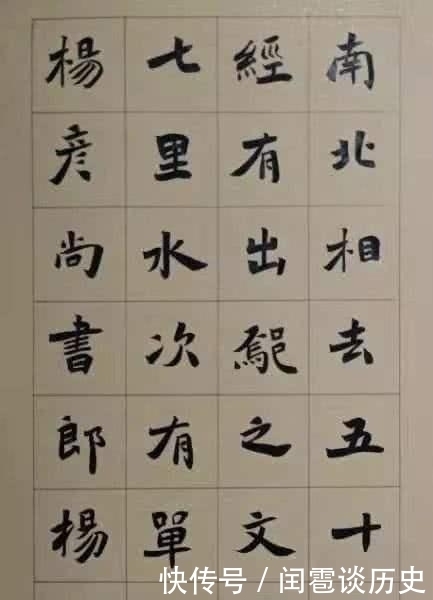 南北相去五十
經有出鄢之文
七里水次有單
楊彦尚書郎楊
快传号 / 闰雹谈历史